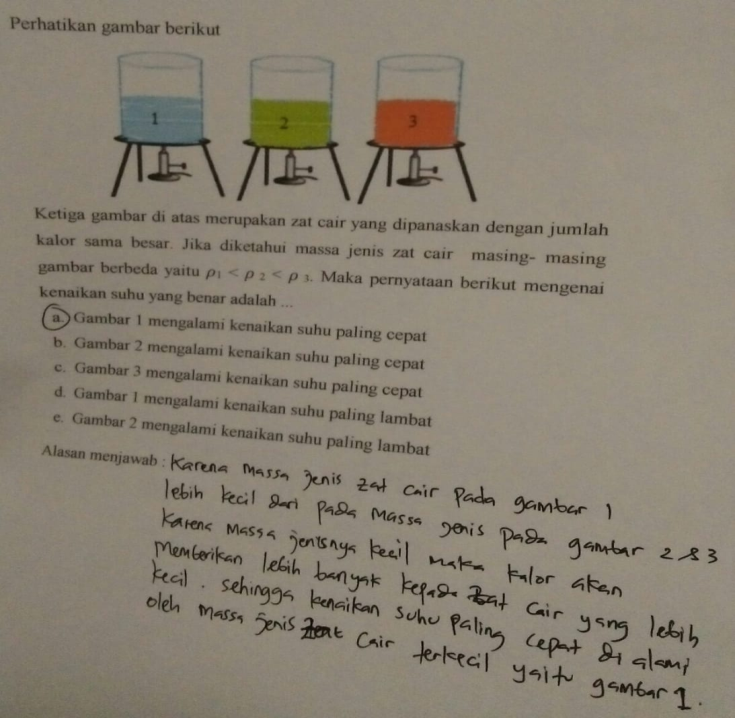 Perhatikan gambar berikut
1 2 3
Ketiga gambar di atas merupakan zat cair yang dipanaskan dengan jumlah
kalor sama besar. Jika diketahui massa jenis zat cair masing- masing
gambar berbeda yaitu ρ₁ < ρ ₂ < ρ ₃. Maka pernyataan berikut mengenai
kenaikan suhu yang benar adalah ...
a. Gambar 1 mengalami kenaikan suhu paling cepat
b. Gambar 2 mengalami kenaikan suhu paling cepat
c. Gambar 3 mengalami kenaikan suhu paling cepat
d. Gambar 1 mengalami kenaikan suhu paling lambat
e. Gambar 2 mengalami kenaikan suhu paling lambat
Alasan menjawab : Karena massa jenis zat cair pada gambar 1
lebih kecil dari pada massa jenis pada gambar 2 & 3
Karena massa jenisnya kecil maka kalor akan
memberikan lebih banyak kepada zat cair yang lebih
kecil. sehingga kenaikan suhu paling cepat di alami
oleh massa jenis zat cair terkecil yaitu gambar 1.